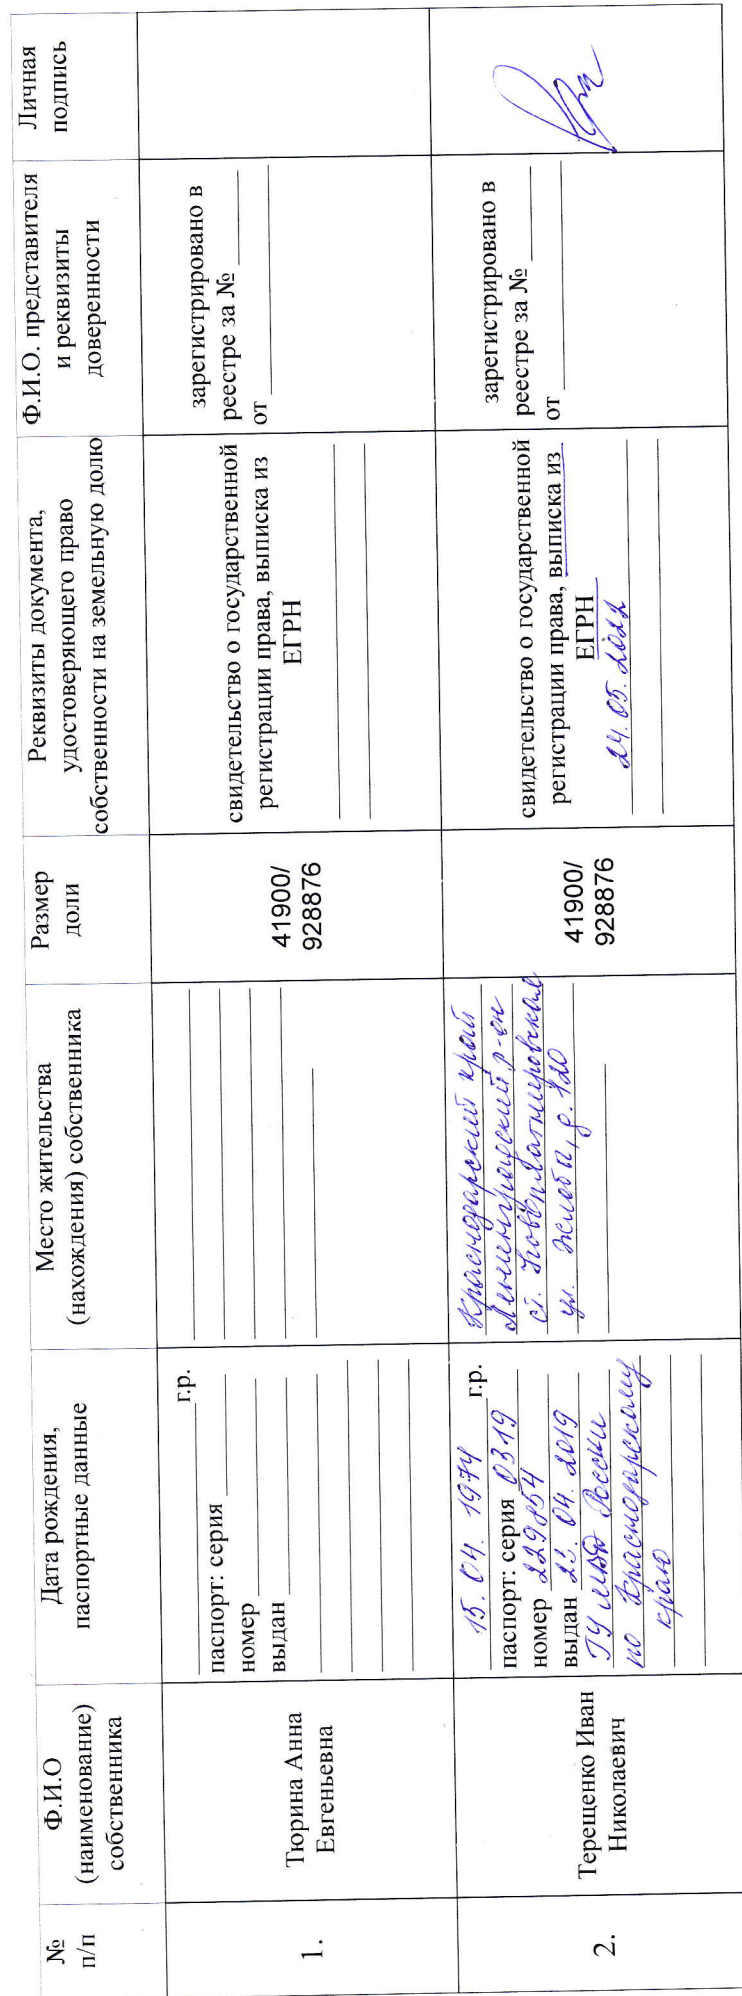 №
п/п
Ф.И.О
(наименование)
собственника
Дата рождения,
паспортные данные
Место жительства
(нахождения) собственника
Размер
доли
Реквизиты документа,
удостоверяющего право
собственности на земельную долю
Ф.И.О. представителя
и реквизиты
доверенности
Личная
подпись
1.
Тюрина Анна
Евгеньевна
г.р.
паспорт: серия
номер
выдан
41900/
928876
свидетельство о государственной
регистрации права, выписка из
ЕГРН
зарегистрировано в
реестре за №
от
2.
Терещенко Иван
Николаевич
15.04.1974 г.р.
паспорт: серия 0319
номер 229854
выдан 23.04.2019
ГУ МВД России
по Краснодарскому
краю
Краснодарский край
Ленинградский р-он
ст. Новоплатнировская
ул. Жлобы, д. 120
41900/
928876
свидетельство о государственной
регистрации права, выписка из
ЕГРН
24.05.2022
зарегистрировано в
реестре за №
от